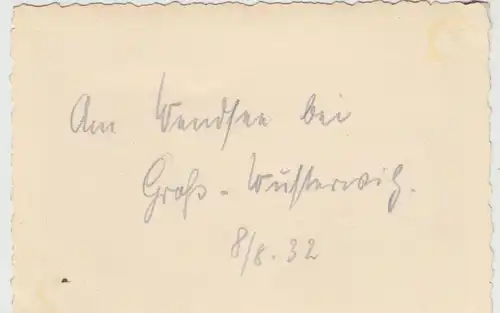 Am Wendsee bei
Groß-Wusterwitz.
8/8.32